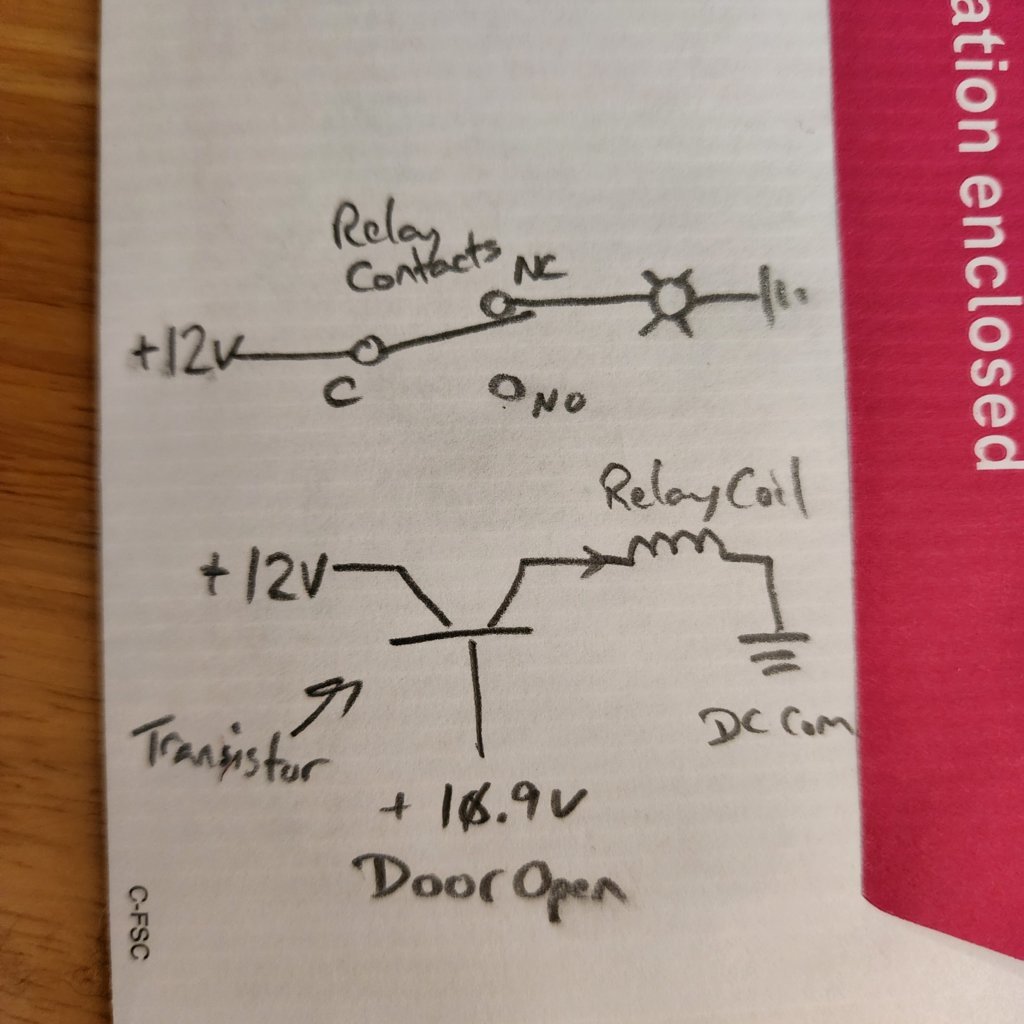 Relay
Contacts
NC
+12V
C
NO
Relay Coil
+12V
DC Com
Transistor
Door Open
C-FSC
ation enclosed